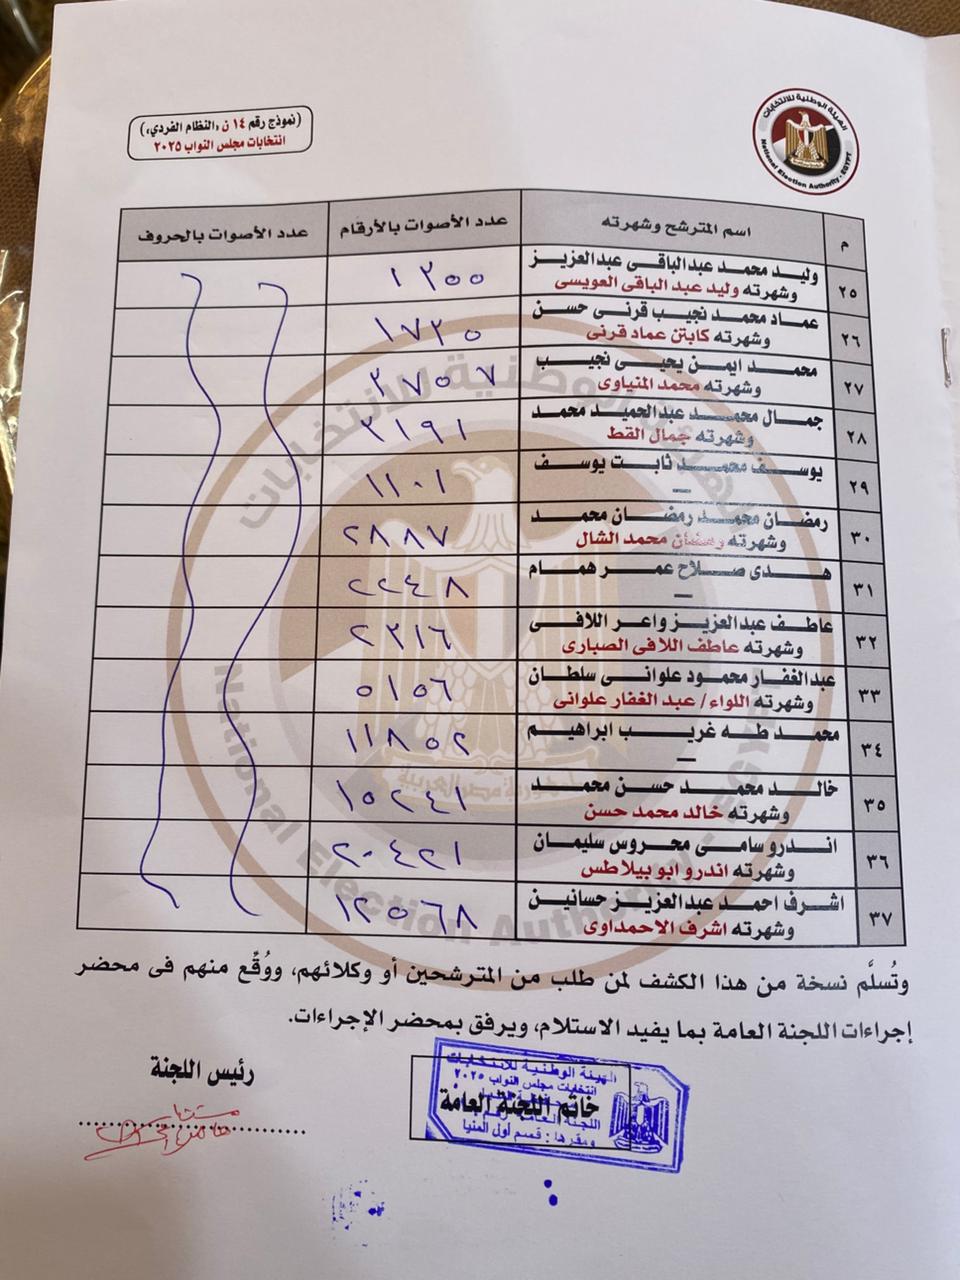 (نموذج رقم ١٤ ن ،النظام الفردي،)
انتخابات مجلس النواب ٢٠٢٥
الهيئة الوطنية للانتخابات
National Election Authority - EGYPT
م اسم المترشح وشهرته عدد الأصوات بالأرقام عدد الأصوات بالحروف
٢٥ وليد محمد عبدالباقى عبدالعزيز
وشهرته وليد عبد الباقى العويسى ١٣٥٥
٢٦ عماد محمد نجيب قرنى حسن
وشهرته كابتن عماد قرنى ١٧٣٥
٢٧ محمد ايمن يحيى نجيب
وشهرته محمد المنياوى ٣٧٥٧
٢٨ جمال محمد عبدالحميد محمد
وشهرته جمال القط ٣١٩١
٢٩ يوسف محمد ثابت يوسف
— ١١٠١
٣٠ رمضان محمد رمضان محمد
وشهرته رمضان محمد الشال ٢٨٨٧
٣١ هدى صلاح عمر همام
— ٢٢٤٨
٣٢ عاطف عبدالعزيز واعر اللافى
وشهرته عاطف اللافى الصبارى ٢٣١٦
٣٣ عبدالغفار محمود علوانى سلطان
وشهرته اللواء / عبد الغفار علوانى ٥١٥٦
٣٤ محمد طه غريب ابراهيم
— ١١٨٥٢
٣٥ خالد محمد حسن محمد
وشهرته خالد محمد حسن ١٥٢٤١
٣٦ اندرو سامى محروس سليمان
وشهرته اندرو ابو بيلاطس ٢٠٤٢١
٣٧ اشرف احمد عبدالعزيز حسانين
وشهرته اشرف الاحمداوى ١٢٥٦٨
الهيئة الوطنية للانتخابات
جمهورية مصر العربية
National Election Authority - EGYPT
وتُسلَّم نسخة من هذا الكشف لمن طلب من المترشحين أو وكلائهم، ووُقِّع منهم فى محضر
إجراءات اللجنة العامة بما يفيد الاستلام، ويرفق بمحضر الإجراءات.
رئيس اللجنة
خاتم اللجنة العامة
الهيئة الوطنية للانتخابات
انتخابات مجلس النواب ٢٠٢٥
اللجنة العامة رقم
ومقرها : قسم أول المنيا